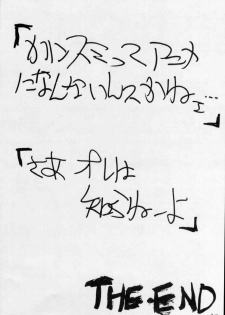 「カリンスミってアニメ
になんないんスかねェ…
」
「さあ オレは
知らねーよ」
THE・END